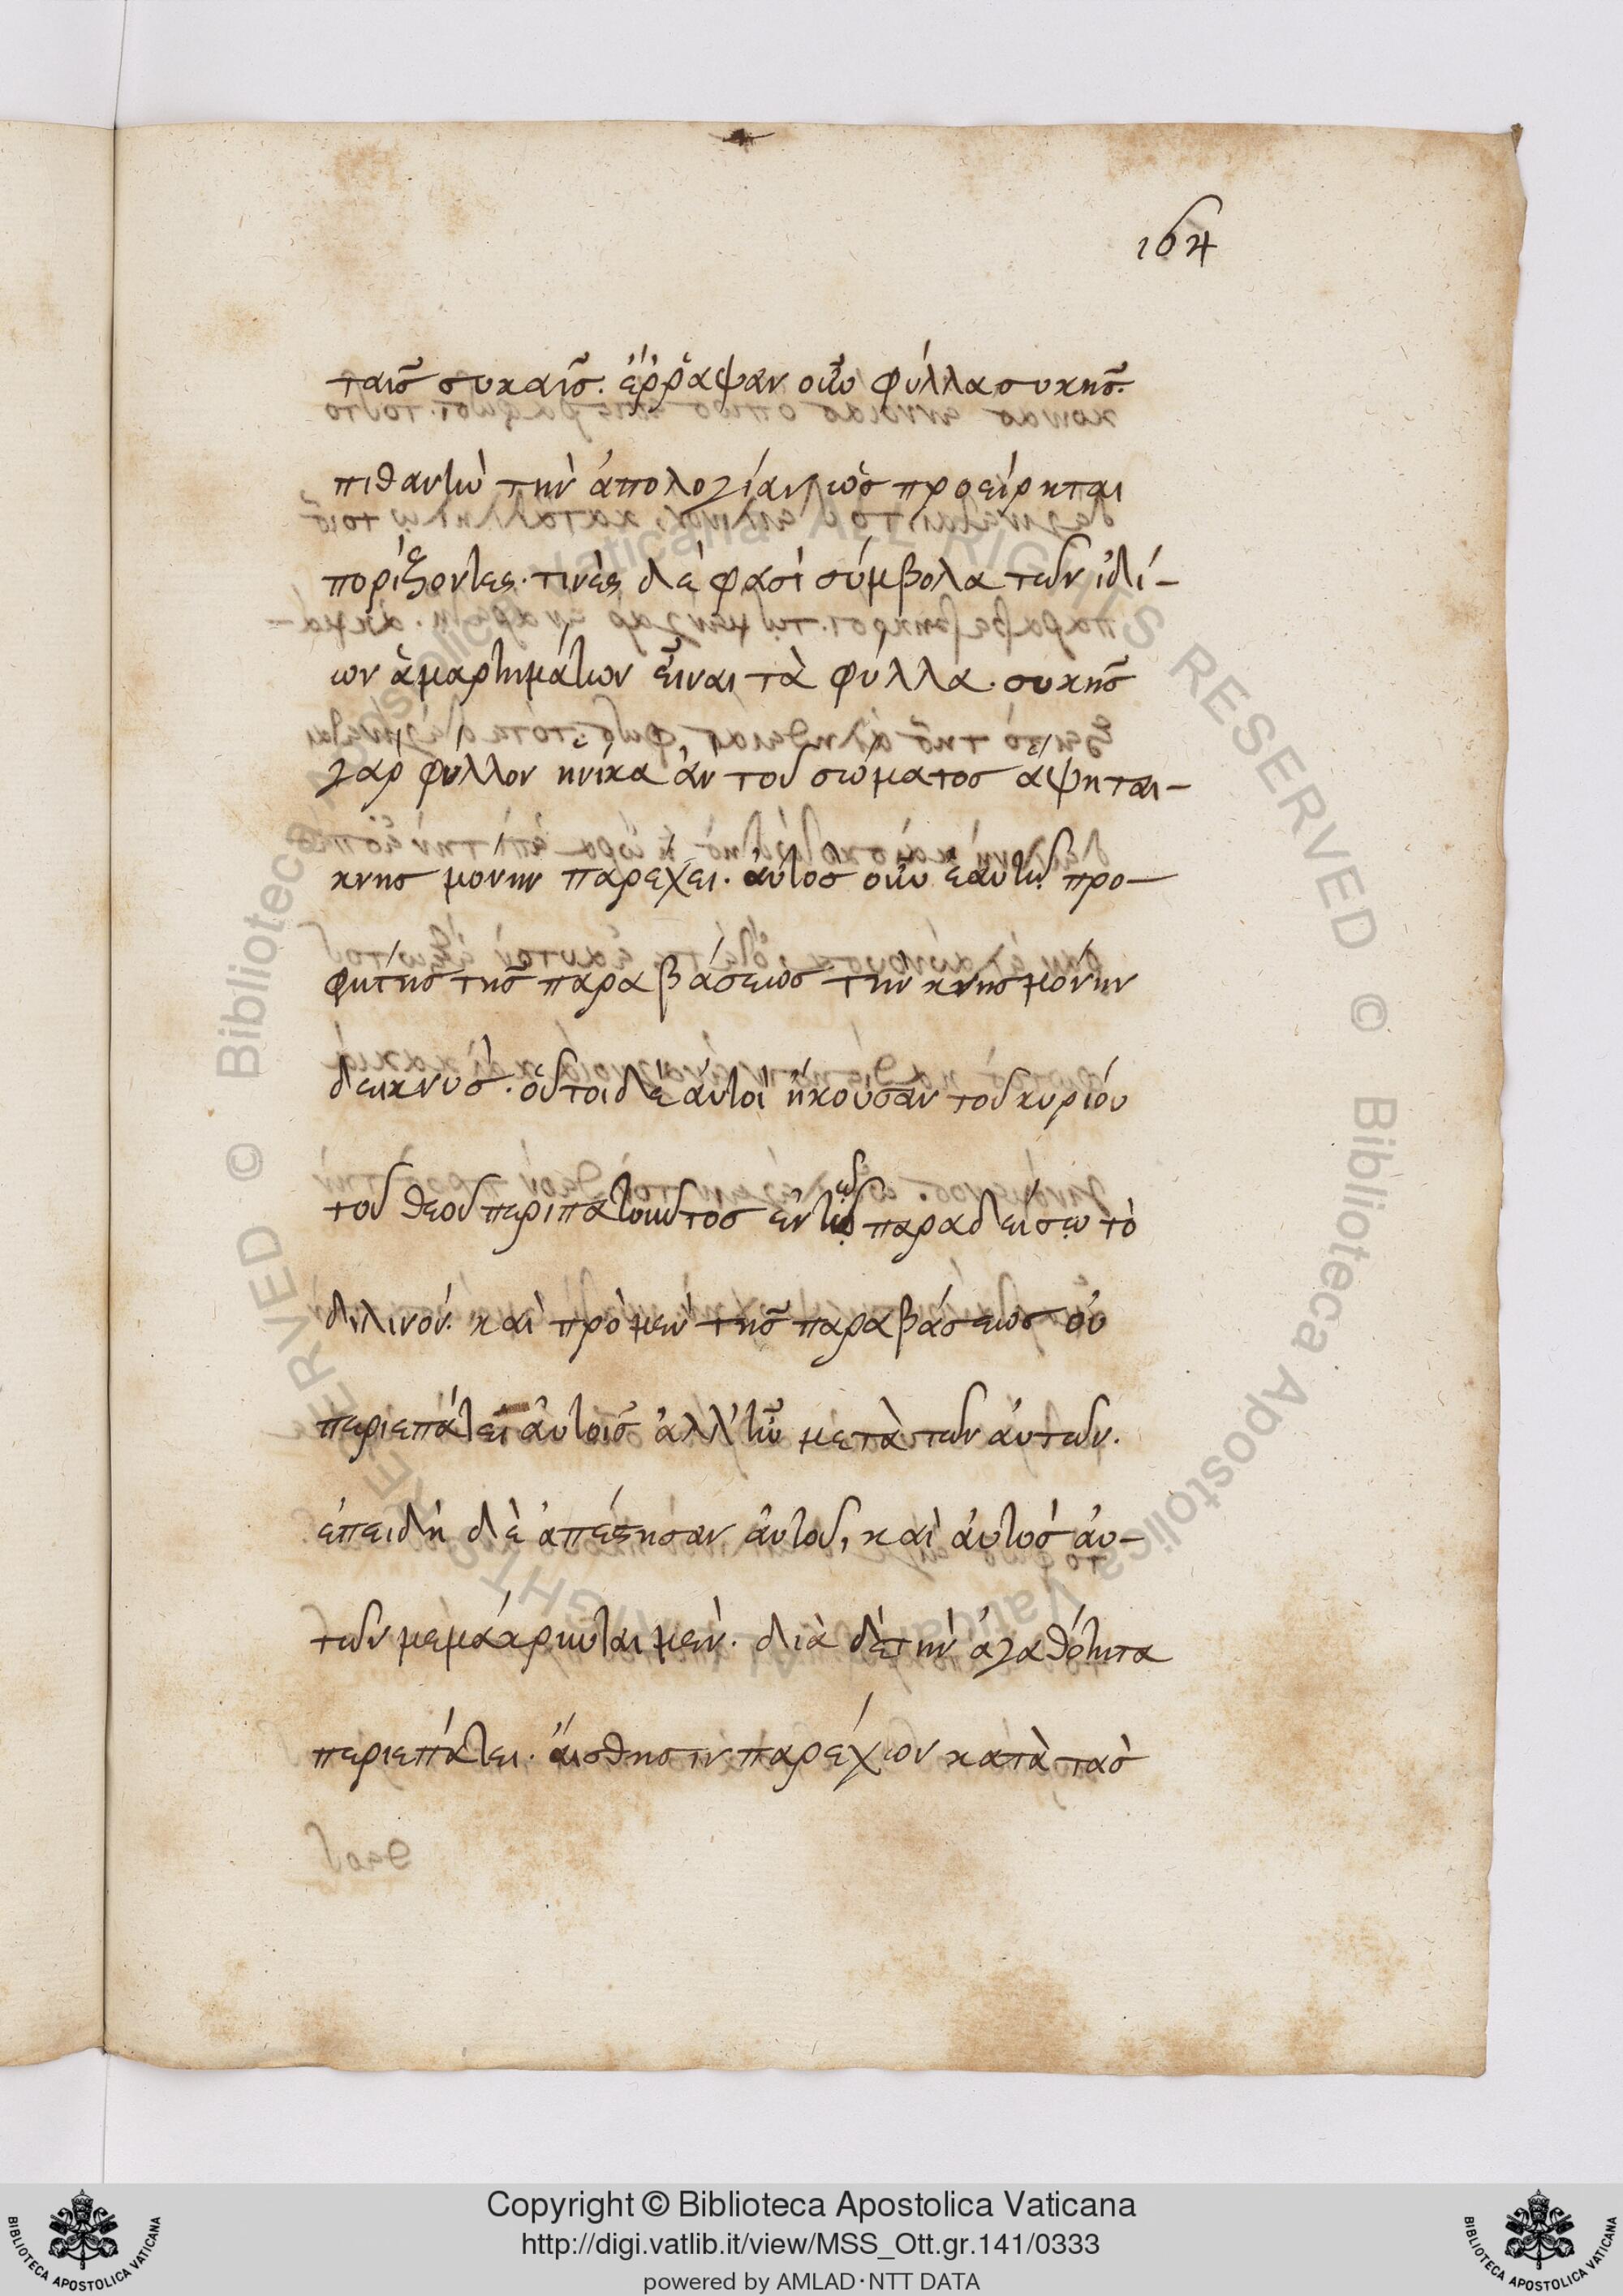 164
ταῖς συκαῖς. ἔρραψαν οὖν φύλλα συκῆς.
πιθανὴν τὴν ἀπολογίαν, ὡς προείρηται
πορίζοντες. τινὲς δέ φασι σύμβολα τῶν ἰδί-
ων ἁμαρτημάτων εἶναι τὰ φύλλα. συκῆς
γὰρ φύλλον ἡνίκα ἂν τοῦ σώματος ἅψηται-
κνησμονὴν παρέχει. αὐτὸς οὖν ἑαυτῷ προ-
φήτης τῆς παραβάσεως τὴν κνησμονὴν
δεικνύς. οὗτοι δὲ αὐτοὶ ἤκουσαν τοῦ κυρίου
τοῦ θεοῦ περιπατοῦντος ἐν τῷ παραδείσῳ τὸ
διλινόν. καὶ πρὸ μὲν τῆς παραβάσεως οὐ
περιεπάτει αὐτοῖς ἀλλ' ἦν μετὰ τῶν αὐτῶν.
ἐπειδὴ δὲ ἀπέστησαν αὐτοῦ, καὶ αὐτὸς αὐ-
τῶν μεμάκρυνται μέν. διὰ δὲ τὴν ἀγαθότητα
περιεπάτει. αἴσθησιν παρέχων κατὰ τὰς
Copyright © Biblioteca Apostolica Vaticana
http://digi.vatlib.it/view/MSS_Ott.gr.141/0333
powered by AMLAD·NTT DATA
BIBLIOTECA APOSTOLICA VATICANA
BIBLIOTECA APOSTOLICA VATICANA
© Biblioteca Apostolica Vaticana ALL RIGHTS RESERVED © Biblioteca Apostolica Vaticana ALL RIGHTS RESERVED